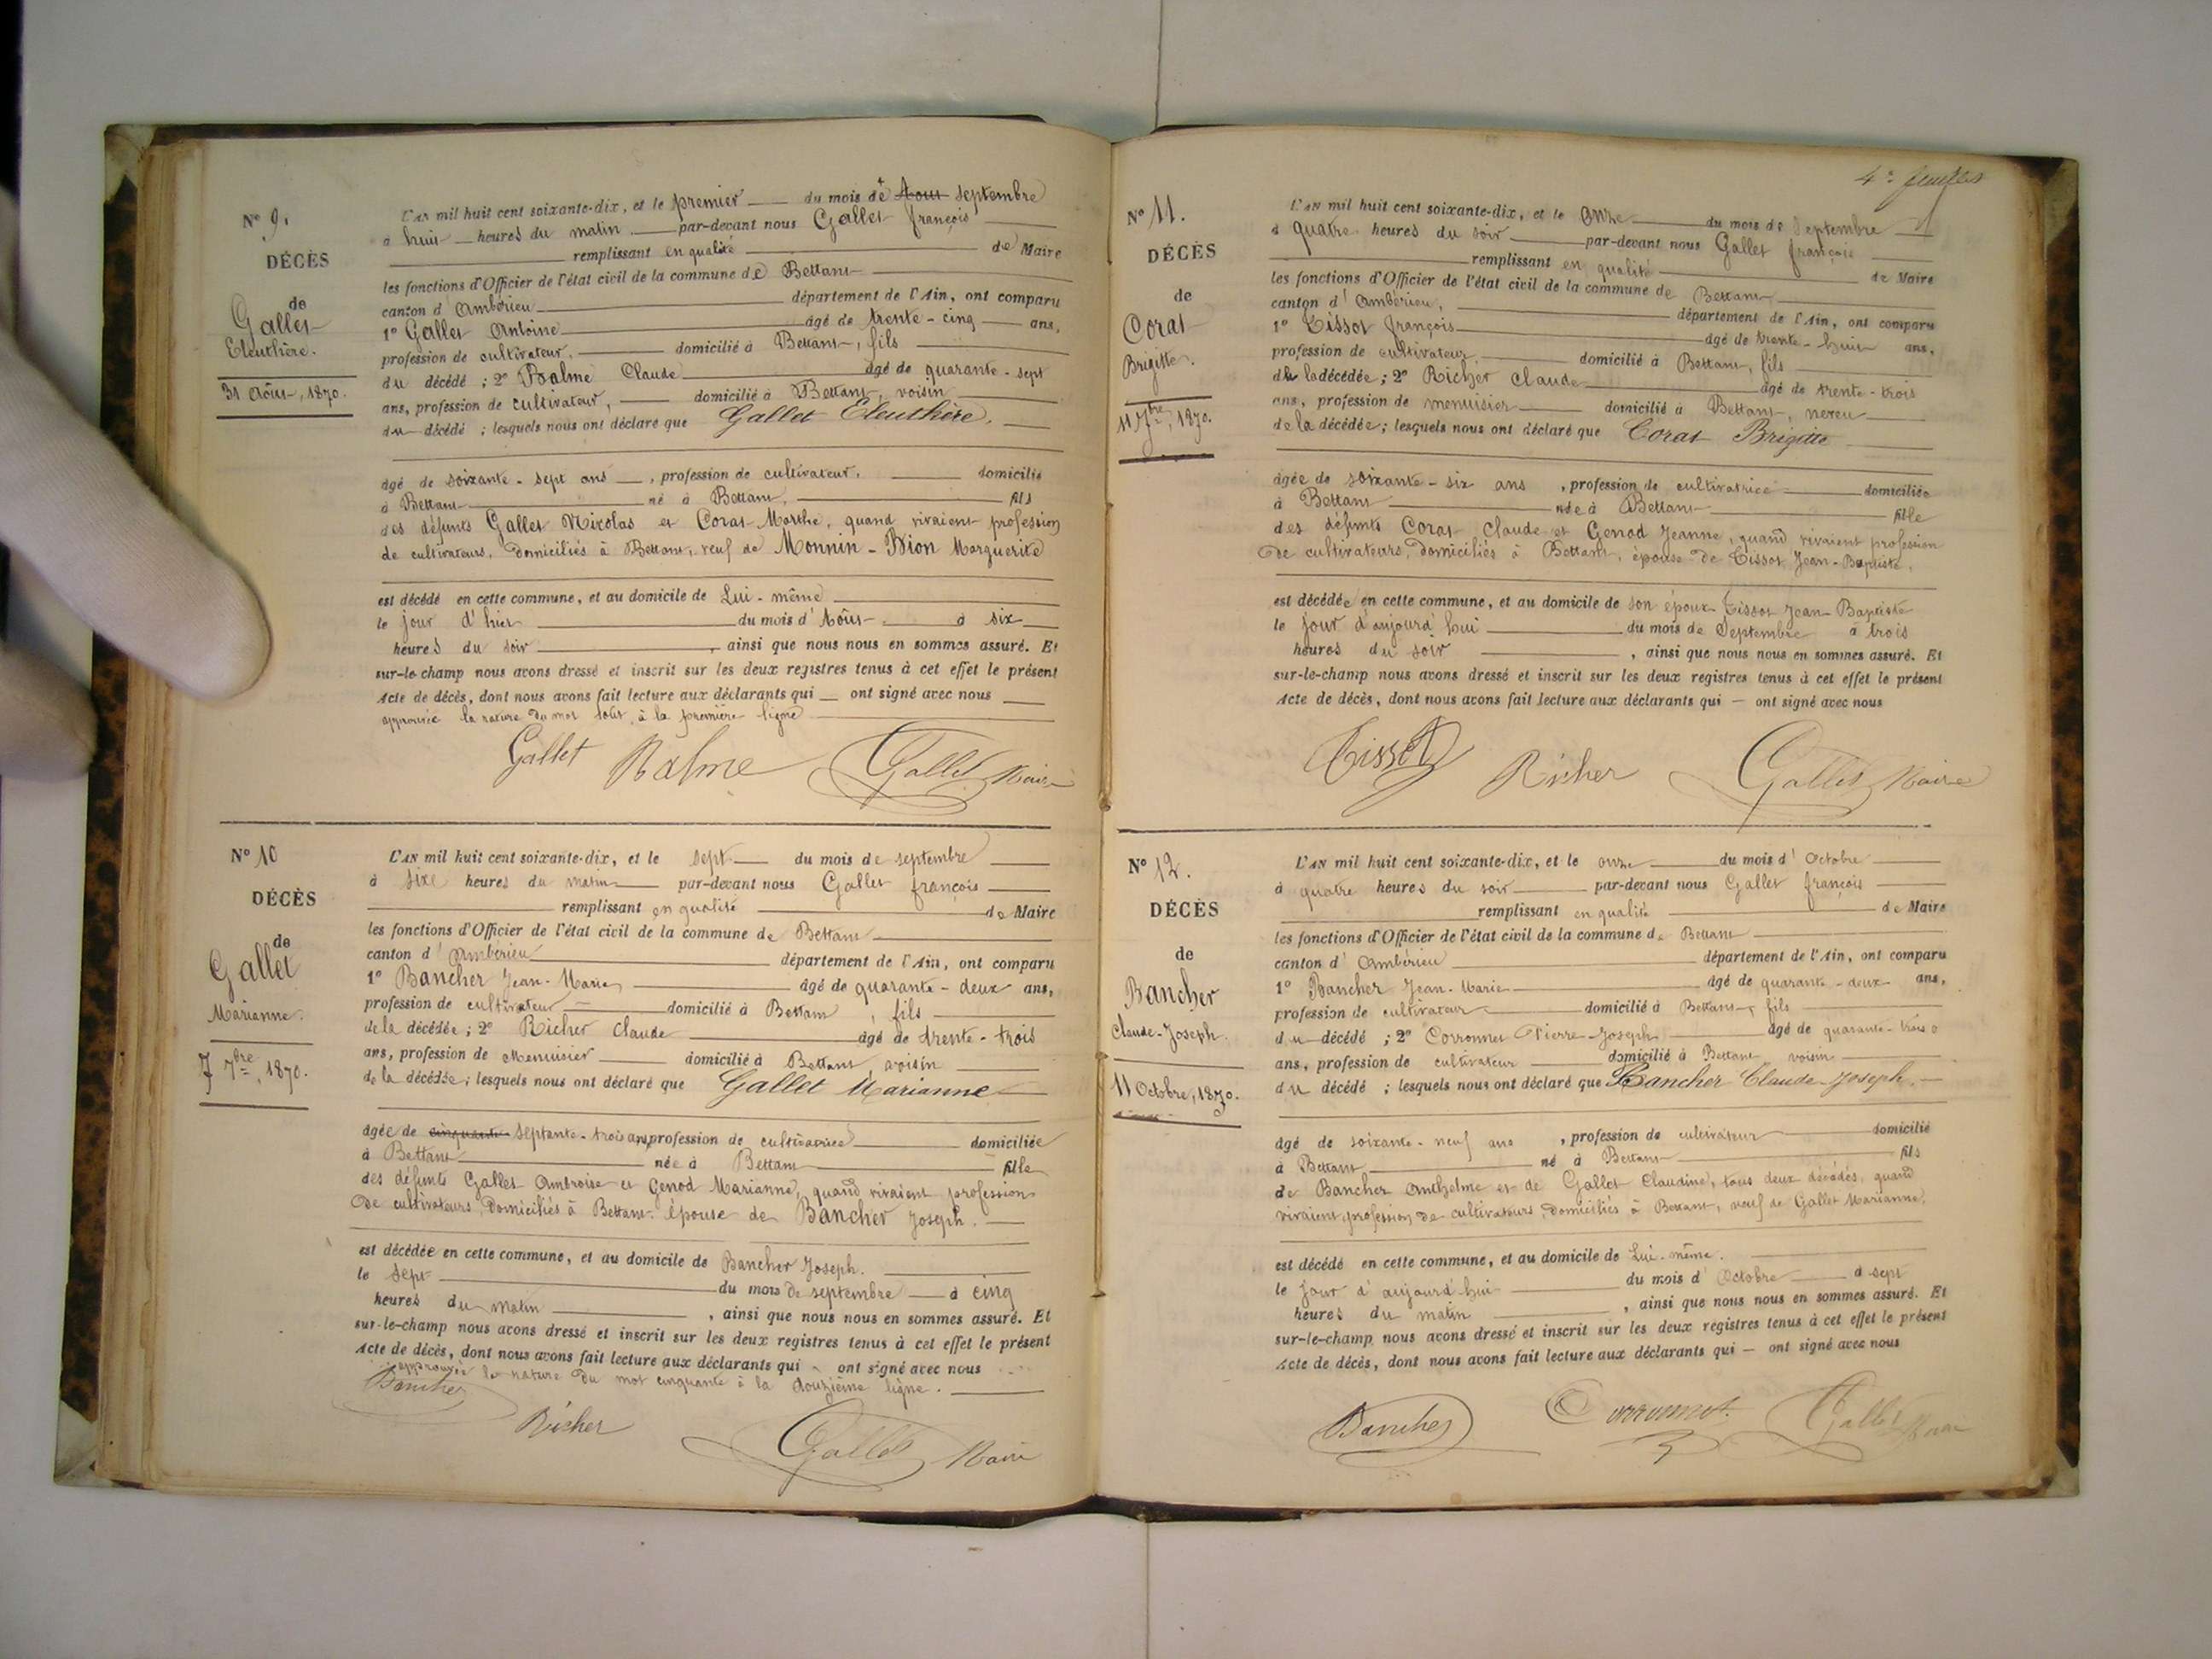 N° 9.
DÉCÈS
de
Gallet
Eleuthère.
31 Août, 1870.
L'AN mil huit cent soixante-dix, et le premier du mois de Aout septembre
à huit heures du matin par-devant nous Gallet françois
remplissant en qualité de Maire
les fonctions d'Officier de l'état civil de la commune de Bettant
canton d'Ambérieu département de l'Ain, ont comparu
1° Gallet Antoine âgé de trente-cinq ans,
profession de cultivateur, domicilié à Bettant, fils
du décédé ; 2° Balme Claude âgé de quarante-sept
ans, profession de cultivateur, domicilié à Bettant, voisin
du décédé ; lesquels nous ont déclaré que Gallet Eleuthère.
âgé de soixante-sept ans, profession de cultivateur, domicilié
à Bettant né à Bettant, fils
des défunts Gallet Nicolas et Corat Marthe, quand vivaient profession
de cultivateurs, domiciliés à Bettant, veuf de Monnin-Bion Marguerite
est décédé en cette commune, et au domicile de Lui-même
le jour d'hier du mois d'Août à six
heures du soir, ainsi que nous nous en sommes assuré. Et
sur-le-champ nous avons dressé et inscrit sur les deux registres tenus à cet effet le présent
Acte de décès, dont nous avons fait lecture aux déclarants qui ont signé avec nous
approuvée la rature du mot août, à la première ligne
Gallet Balme Gallet Maire
N° 10
DÉCÈS
de
Gallet
Marianne.
7 7bre, 1870.
L'AN mil huit cent soixante-dix, et le sept du mois de septembre
à sixe heures du matin par-devant nous Gallet françois
remplissant en qualité de Maire
les fonctions d'Officier de l'état civil de la commune de Bettant
canton d'Ambérieu département de l'Ain, ont comparu
1° Bancher Jean-Marie âgé de quarante-deux ans,
profession de cultivateur domicilié à Bettant, fils
de la décédée ; 2° Richer Claude âgé de trente-trois
ans, profession de Menuisier domicilié à Bettant, voisin
de la décédée ; lesquels nous ont déclaré que Gallet Marianne
âgée de cinquante septante-trois ans, profession de cultivatrice domiciliée
à Bettant née à Bettant fille
des défunts Gallet Ambroise et Genod Marianne, quand vivaient profession
de cultivateurs, domiciliés à Bettant. épouse de Bancher Joseph.
est décédée en cette commune, et au domicile de Bancher Joseph.
le sept du mois de septembre à cinq
heures du matin, ainsi que nous nous en sommes assuré. Et
sur-le-champ nous avons dressé et inscrit sur les deux registres tenus à cet effet le présent
Acte de décès, dont nous avons fait lecture aux déclarants qui ont signé avec nous
approuvée la rature du mot cinquante à la douzième ligne.
Bancher
Richer Gallet Maire
4e feuillet
N° 11.
DÉCÈS
de
Corat
Brigitte.
11 7bre, 1870.
L'AN mil huit cent soixante-dix, et le onze du mois de septembre
à quatre heures du soir par-devant nous Gallet françois
remplissant en qualité de Maire
les fonctions d'Officier de l'état civil de la commune de Bettant
canton d'Ambérieu, département de l'Ain, ont comparu
1° Tissot françois âgé de trente-huit ans,
profession de cultivateur, domicilié à Bettant, fils
de la décédée ; 2° Richer Claude âgé de trente-trois
ans, profession de menuisier domicilié à Bettant, neveu
de la décédée ; lesquels nous ont déclaré que Corat Brigitte
âgée de soixante-six ans, profession de cultivatrice domiciliée
à Bettant née à Bettant fille
des défunts Corat Claude et Genod Jeanne, quand vivaient profession
de cultivateurs, domiciliés à Bettant, épouse de Tissot Jean-Baptiste,
est décédée en cette commune, et au domicile de son époux Tissot Jean-Baptiste
le jour d'aujourd'hui du mois de Septembre à trois
heures du soir, ainsi que nous nous en sommes assuré. Et
sur-le-champ nous avons dressé et inscrit sur les deux registres tenus à cet effet le présent
Acte de décès, dont nous avons fait lecture aux déclarants qui — ont signé avec nous
Tissot Richer Gallet Maire
N° 12.
DÉCÈS
de
Bancher
Claude-Joseph.
11 Octobre, 1870.
L'AN mil huit cent soixante-dix, et le onze du mois d'Octobre
à quatre heures du soir par-devant nous Gallet françois
remplissant en qualité de Maire
les fonctions d'Officier de l'état civil de la commune de Bettant
canton d'Ambérieu département de l'Ain, ont comparu
1° Bancher Jean-Marie âgé de quarante-deux ans,
profession de cultivateur domicilié à Bettant, fils
du décédé ; 2° Corronnet Pierre-Joseph âgé de quarante-trois
ans, profession de cultivateur domicilié à Bettant voisin
du décédé ; lesquels nous ont déclaré que Bancher Claude-Joseph.
âgé de soixante-neuf ans, profession de cultivateur domicilié
à Bettant né à Bettant fils
de Bancher Anthelme et de Gallet Claudine, tous deux décédés, quand
vivaient, profession de cultivateurs, domiciliés à Bettant, veuf de Gallet Marianne,
est décédé en cette commune, et au domicile de Lui-même.
le jour d'aujourd'hui du mois d'Octobre à sept
heures du matin, ainsi que nous nous en sommes assuré. Et
sur-le-champ nous avons dressé et inscrit sur les deux registres tenus à cet effet le présent
Acte de décès, dont nous avons fait lecture aux déclarants qui — ont signé avec nous
Bancher Corronnet Gallet Maire